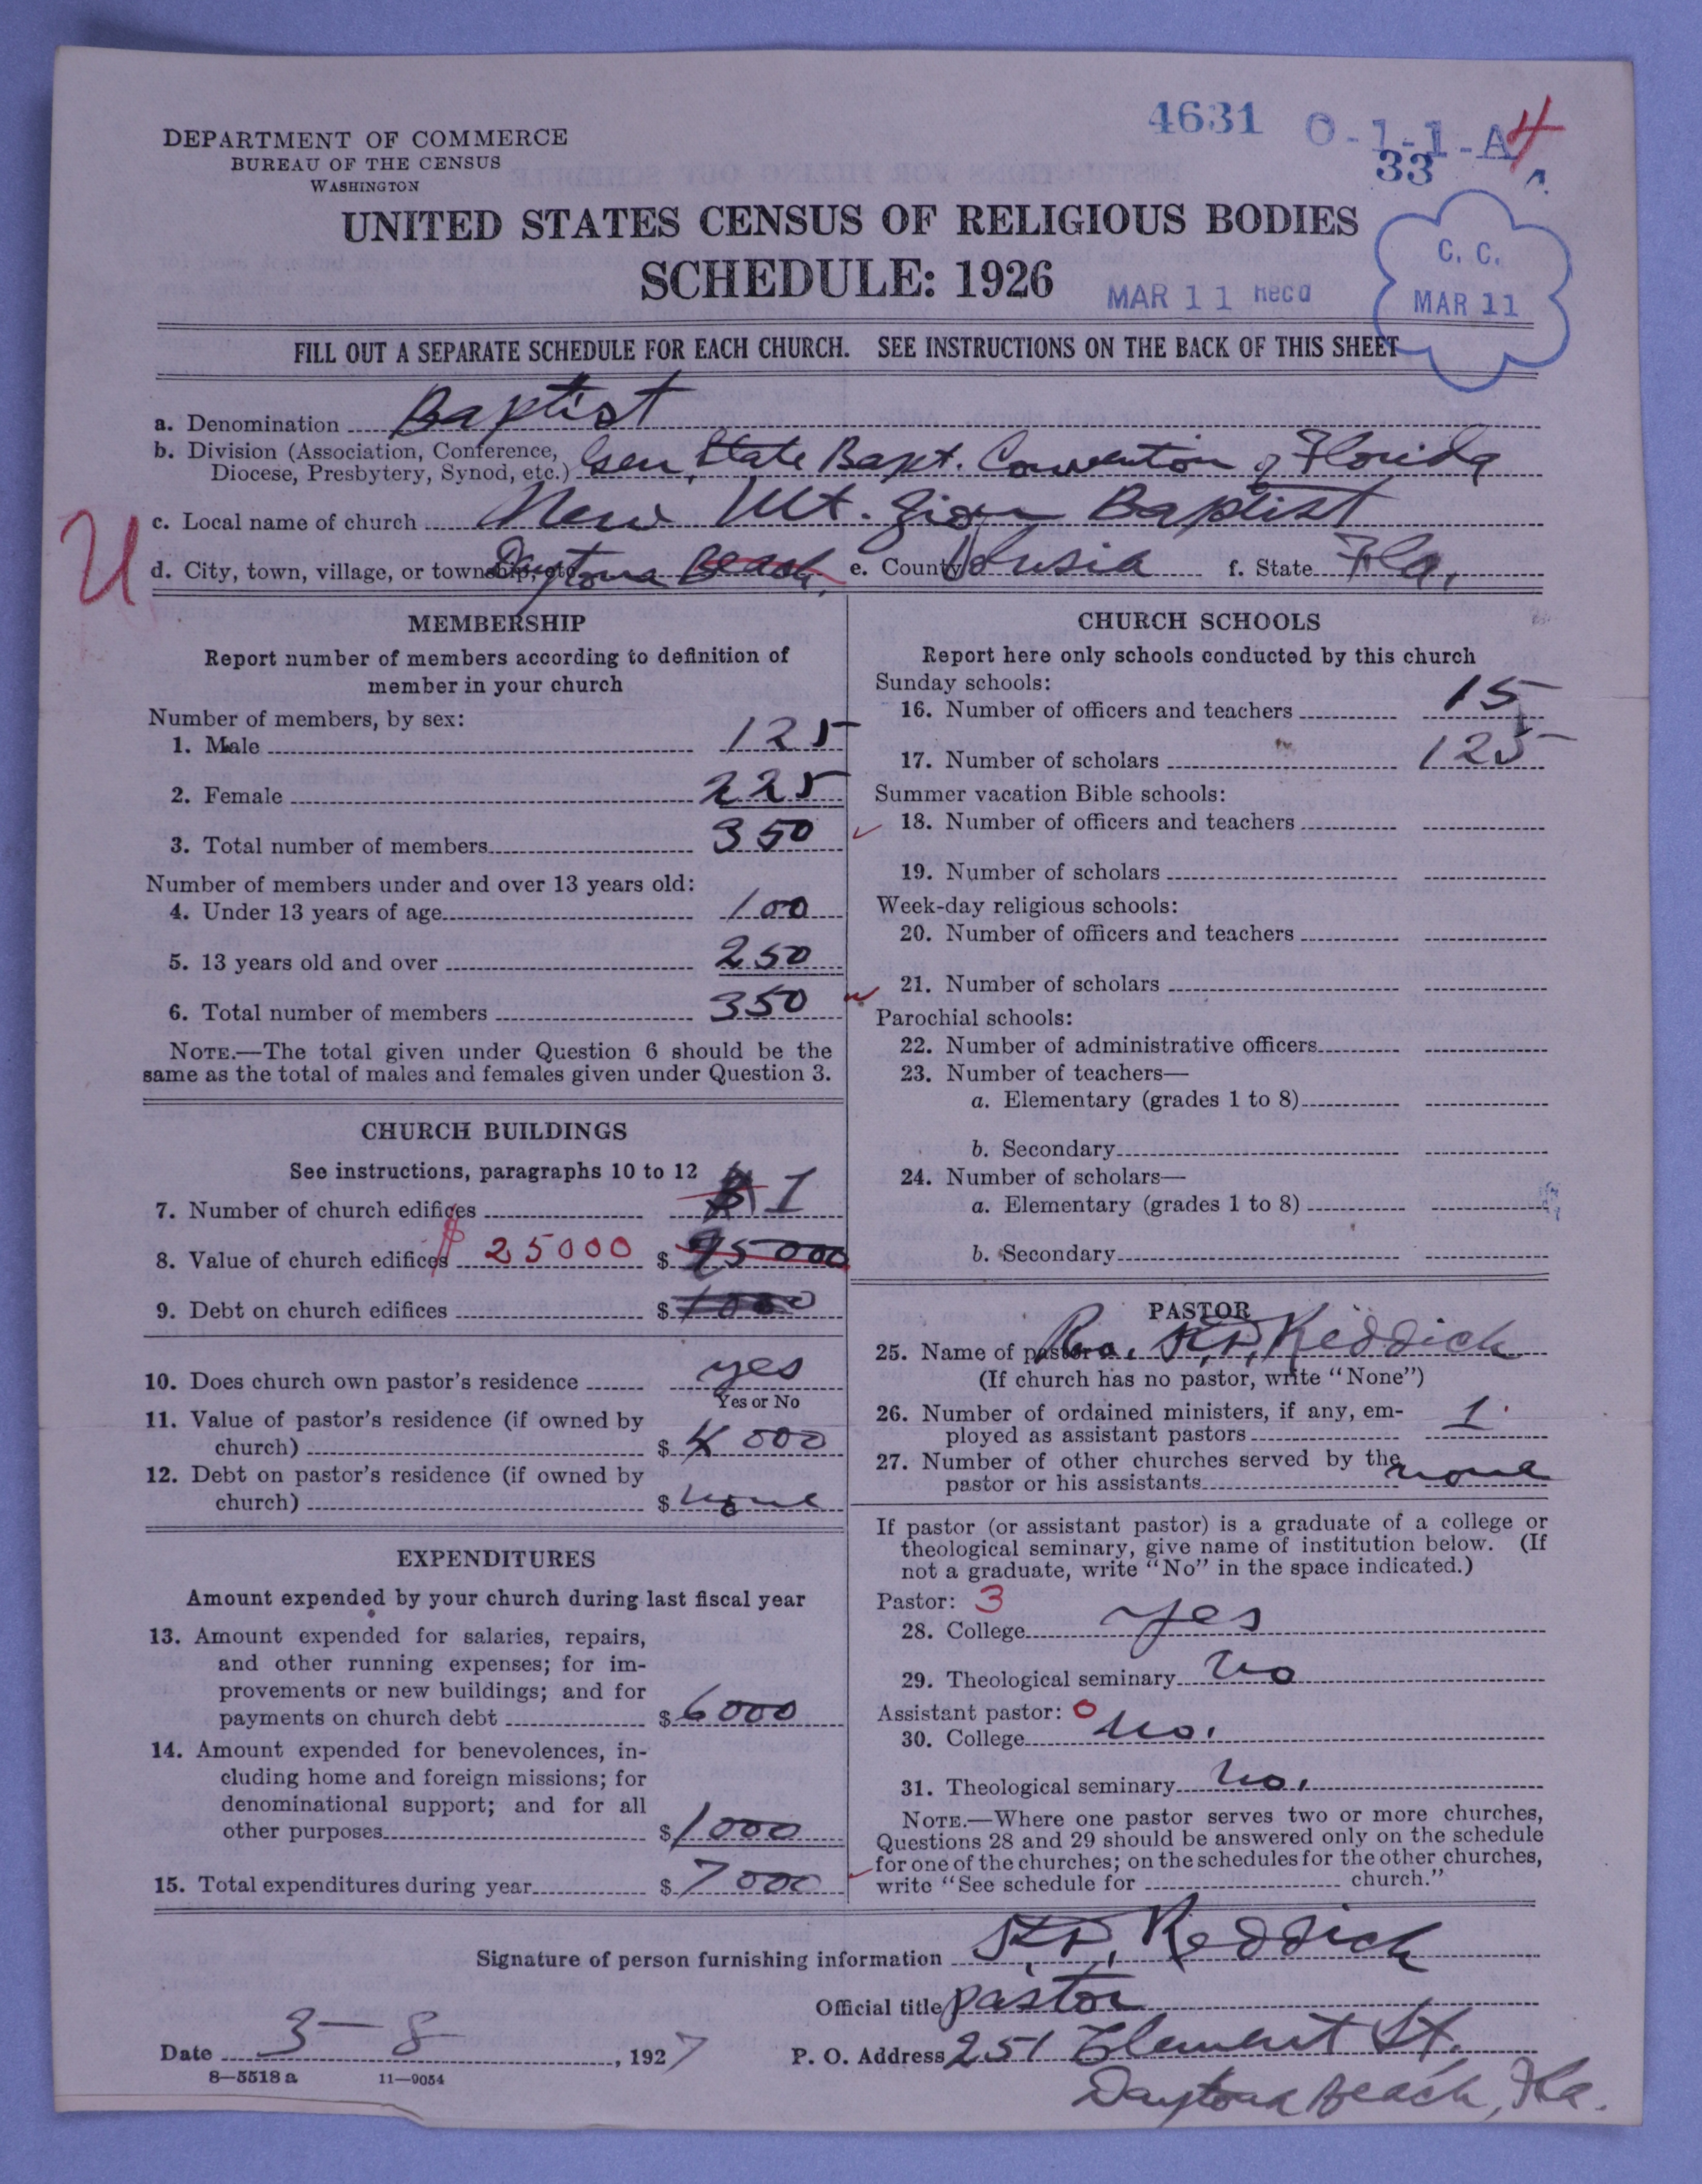 4631 O-1-1-A 4
33
DEPARTMENT OF COMMERCE
BUREAU OF THE CENSUS
WASHINGTON
UNITED STATES CENSUS OF RELIGIOUS BODIES
SCHEDULE: 1926
MAR 11 Recd
C. C.
MAR 11
FILL OUT A SEPARATE SCHEDULE FOR EACH CHURCH. SEE INSTRUCTIONS ON THE BACK OF THIS SHEET
a. Denomination Baptist
b. Division (Association, Conference,
Diocese, Presbytery, Synod, etc.) Gen. State Bapt. Convention of Florida
c. Local name of church New Mt. Zion Baptist
U
d. City, town, village, or township, etc. Daytona Beach, e. County Volusia f. State Fla.
MEMBERSHIP
Report number of members according to definition of
member in your church
Number of members, by sex:
1. Male 125
2. Female 225
3. Total number of members 350
Number of members under and over 13 years old:
4. Under 13 years of age 100
5. 13 years old and over 250
6. Total number of members 350
NOTE.—The total given under Question 6 should be the
same as the total of males and females given under Question 3.
CHURCH BUILDINGS
See instructions, paragraphs 10 to 12
7. Number of church edifices 1
8. Value of church edifices $ 25000 $ 25000
9. Debt on church edifices $ 1000
10. Does church own pastor's residence yes
Yes or No
11. Value of pastor's residence (if owned by
church) $ 4000
12. Debt on pastor's residence (if owned by
church) $ none
EXPENDITURES
Amount expended by your church during last fiscal year
13. Amount expended for salaries, repairs,
and other running expenses; for im-
provements or new buildings; and for
payments on church debt $ 6000
14. Amount expended for benevolences, in-
cluding home and foreign missions; for
denominational support; and for all
other purposes $ 1000
15. Total expenditures during year $ 7000
CHURCH SCHOOLS
Report here only schools conducted by this church
Sunday schools:
16. Number of officers and teachers 15
17. Number of scholars 125
Summer vacation Bible schools:
18. Number of officers and teachers
19. Number of scholars
Week-day religious schools:
20. Number of officers and teachers
21. Number of scholars
Parochial schools:
22. Number of administrative officers
23. Number of teachers—
a. Elementary (grades 1 to 8)
b. Secondary
24. Number of scholars—
a. Elementary (grades 1 to 8)
b. Secondary
PASTOR
25. Name of pastor Rev. Reddick
(If church has no pastor, write "None")
26. Number of ordained ministers, if any, em-
ployed as assistant pastors 1
27. Number of other churches served by the
pastor or his assistants none
If pastor (or assistant pastor) is a graduate of a college or
theological seminary, give name of institution below. (If
not a graduate, write "No" in the space indicated.)
Pastor: 3
28. College yes
29. Theological seminary No
Assistant pastor: 0
30. College No.
31. Theological seminary No.
NOTE.—Where one pastor serves two or more churches,
Questions 28 and 29 should be answered only on the schedule
for one of the churches; on the schedules for the other churches,
write "See schedule for church."
Signature of person furnishing information Reddick
Official title pastor
Date 3-8, 1927 P. O. Address 251 Clement St.
8—5518 a 11—9054
Daytona Beach, Fla.